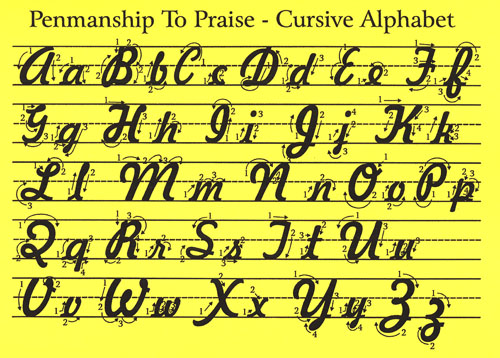 Penmanship To Praise - Cursive Alphabet
A a B b C c D d E e F f
G g H h I i J j K k
L l M m N n O o P p
Q q R r S s T t U u
V v W w X x Y y Z z